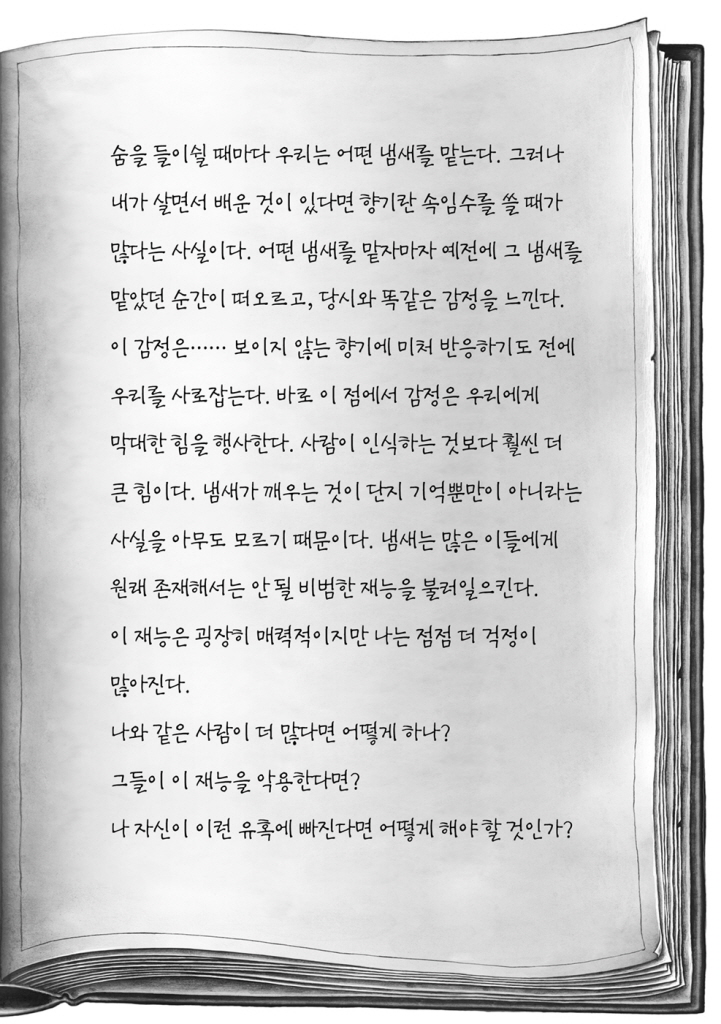 숨을 들이쉴 때마다 우리는 어떤 냄새를 맡는다. 그러나
내가 살면서 배운 것이 있다면 향기란 속임수를 쓸 때가
많다는 사실이다. 어떤 냄새를 맡자마자 예전에 그 냄새를
맡았던 순간이 떠오르고, 당시와 똑같은 감정을 느낀다.
이 감정은…… 보이지 않는 향기에 미처 반응하기도 전에
우리를 사로잡는다. 바로 이 점에서 감정은 우리에게
막대한 힘을 행사한다. 사람이 인식하는 것보다 훨씬 더
큰 힘이다. 냄새가 깨우는 것이 단지 기억뿐만이 아니라는
사실을 아무도 모르기 때문이다. 냄새는 많은 이들에게
원래 존재해서는 안 될 비범한 재능을 불러일으킨다.
이 재능은 굉장히 매력적이지만 나는 점점 더 걱정이
많아진다.
나와 같은 사람이 더 많다면 어떻게 하나?
그들이 이 재능을 악용한다면?
나 자신이 이런 유혹에 빠진다면 어떻게 해야 할 것인가?